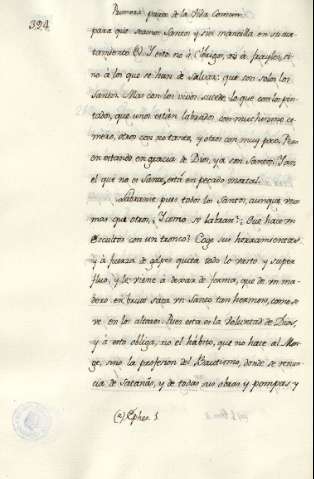 394
Primera parte de la Vida Comun
para que seamos Santos, y sin mancilla en su aca-
tamiento (a) Y esto no à Clerigos, ni à frayles, si
no á los que se han de Salvar: que son solos los
Santos. Mas con los vivos sucede, lo que con los pin-
tados, que unos estàn labrados, con muchisimo es-
mero, otros con no tanto, y otros con muy poco. Pero
en estando en gracia de Dios, ya son Santos. Y aun
el que no es Santo, està en pecado mortal.
Labranse pues todos los Santos, aunque unos
mas que otros, Y como se labran? Que hace un
Escultor con un tronco? Coge sus herramientas
y à fuerza de golpes quita todo lo basto y super
fluo, y le viene à dexar de forma, que de un ma-
dero en bruto saca un Santo tan hermoso, como se
ve en los altares. Pues esta es la Voluntad de Dios,
y à esto obliga, no el hábito, que no hace al Mon-
ge, sino la profesion del Bautismo, donde se renun-
cia de Satanás, y de todas sus obras, y pompas, y
(a) Ephes. 1